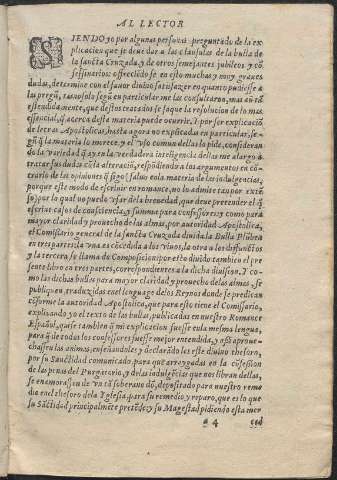 AL LECTOR
SIENDO yo por algunas personas preguntado de la ex
plicacion que se deue dar a las clausulas de la bulla de
la sancta Cruzada, y de otros semejantes jubileos y cõ
fessionarios: offreciẽdose en esto muchas y muy graues
dudas, determine con el fauor diuino satisfazer en quanto pudiesse a
las pregũtas, no solo segũ en particular me las consultaron, mas an
estendidamente, que destos tratados se saque la resolucion de lo mas
essencial, q̃ acerca desta materia puede ocurrir. Y por ser explicaciõ
de letras Apostolicas, hasta agora no explicadas en particular, se-
gũ q̃ la materia lo merece, y el vso comun dellas lo pide, consideran
do la variedad q̃ ay en la verdadera inteligencia dellas me alargo à
tratar sus dudas cõ la alteraciõ, respõdiendo a los argumentos en cõ
trario de las opiniones q̃ sigo (saluo en la materia de las indulgencias,
porque este modo de escriuir en romance, no los admite tan por extẽ
so) por lo qual no puedo vsar de la breuedad, que deue pretender el q̃
escriue casos de consciencia, y summa para confessores: y como para
mayor claridad y prouecho de las almas, por autoridad Apostolica,
el Comissario general de la sancta Cruzada diuida la Bulla Plũbea
en tres partes: la vna es cõcedida a los viuos, la otra a los diffunctos
y la tercera se llama de Composicion: por esto diuido tambien el pre
sente libro en tres partes, correspondientes a la dicha diuision. Y co
mo las dichas bullas para mayor claridad, y prouecho de las almas, se
publiquen traduzidas en el lenguage de los Reynos donde se predican
cõforme la autoridad Apostolica, que para esto tiene el Comissario,
explicando yo el texto de las bullas, publicadas en nuestro Romance
Español, quise tambien q̃ mi explicacion fuesse en la mesma lengua,
para q̃ de todos los confessores fuesse mejor entendida, y assi aproue-
chassen las animas, enseñandoles y declarãdoles este diuino thesoro,
por su Sanctidad comunicado, para que arreygadas en la cõfession
de las penas del Purgatorio, y de las indulgẽcias que nos libran dellas,
se enamorassen de vn tã soberano dõ, depositado para nuestro reme
dio en el thesoro de la Yglesia, para su remedio, y reparo, que es lo que
su Sãctidad principalmẽte pretẽde, y su Magestad pidiendo esta mer
a 4 ced